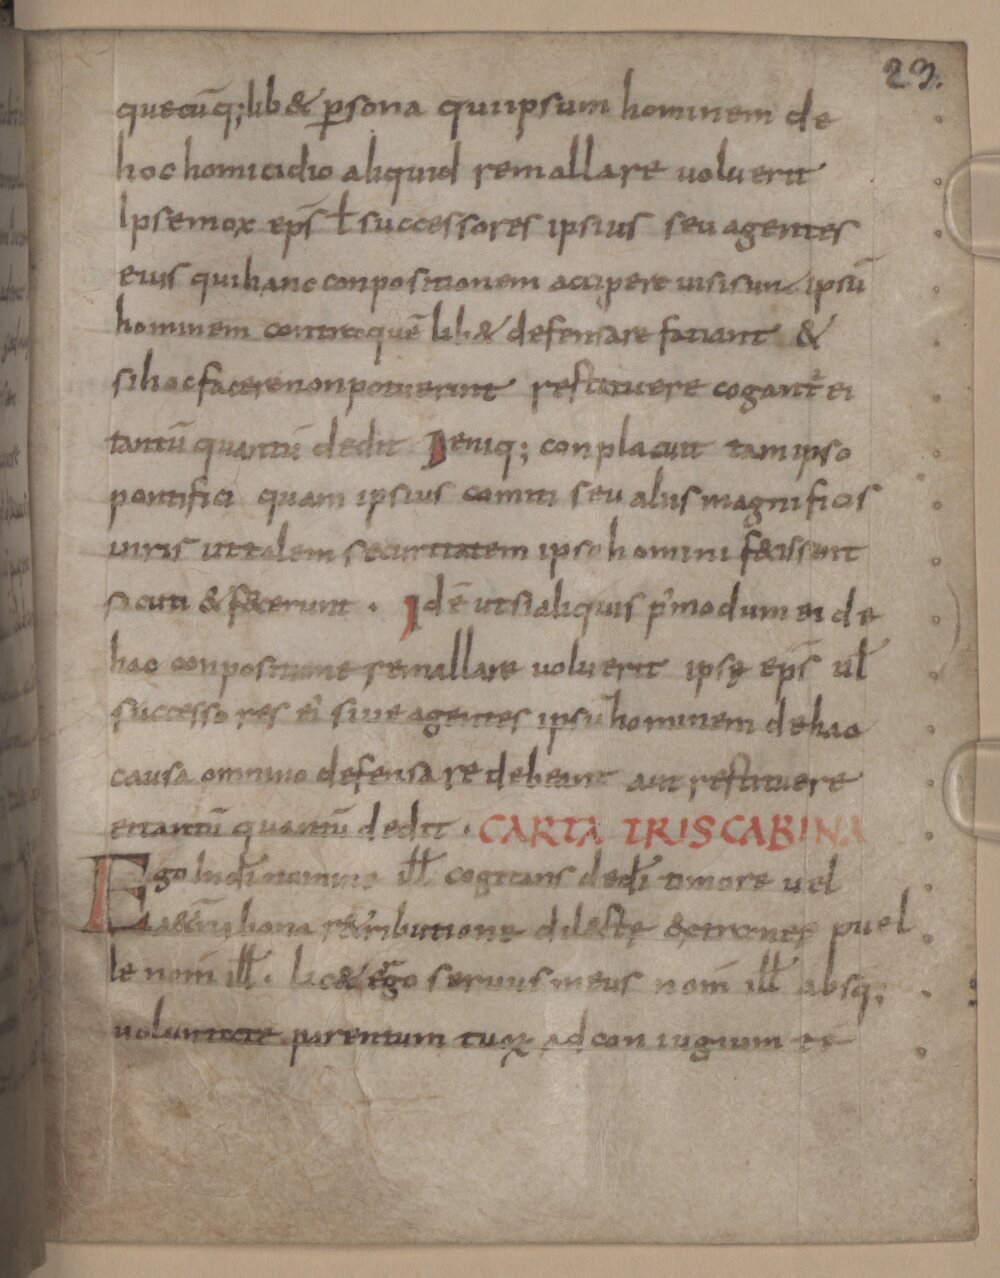 23.
quecūq; lib& psona qui ipsum hominem de
hoc homicidio aliquid remallare voluerit
Ipse mox eps̄ ł successores ipsius seu agentes
eius qui hanc conpositionem accipere visi sunt ipsū
hominem contra quē lib& defensare faciant &
si hoc facere non potuerint restituere cogant̄ ei
tantū quantū dedit Deniq; conplacuit tam ipso
pontifici quam ipsius comiti seu aliis magnificis
viris ut talem securitatem ipso homini fecissent
sicuti & fecerunt . Idē ut si aliquis p̄modum ei de
hac conpositione remallare voluerit ipsę eps̄ ul̄
successores ei' sive agentes ipsū hominem de hac
causa omnino defensare debeant aut restituere
ei tantū quantū dedit . CARTA TRISCABINA
Ego in dī nomine ill̄ cogitans de dī timore vel
bona retributione dilectę puel
le nom̄ ill̄. lic& ego servus meus nom̄ ill̄ absq;
voluntate parentum tuoꝝ ad coniugium te